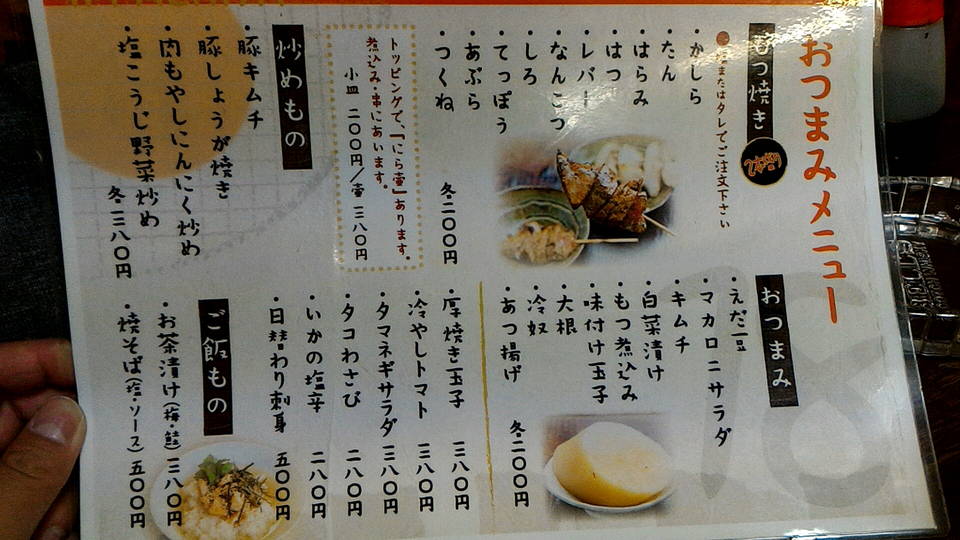 おつまみメニュー
もつ焼き
2本より
塩またはタレでご注文下さい
・かしら
・たん
・はらみ
・はつ
・レバー
・なんこつ
・しろ
・てっぽう
・あぶら
・つくね
各二〇〇円
トッピングで、「にら壺」あります。
煮込み・串にあいます。
小皿 二〇〇円/壷 三八〇円
炒めもの
・豚キムチ
・豚しょうが焼き
・肉もやしにんにく炒め
・塩こうじ野菜炒め
各三八〇円
おつまみ
・えだ豆
・マカロニサラダ
・キムチ
・白菜漬け
・もつ煮込み
・味付け玉子
・大根
・冷奴
・あつ揚げ
各二〇〇円
・厚焼き玉子 三八〇円
・冷やしトマト 三八〇円
・タマネギサラダ 三八〇円
・タコわさび 二八〇円
・いかの塩辛 二八〇円
・日替わり刺身 五〇〇円
ご飯もの
・お茶漬け(梅・鮭) 三八〇円
・焼そば(塩・ソース) 五〇〇円